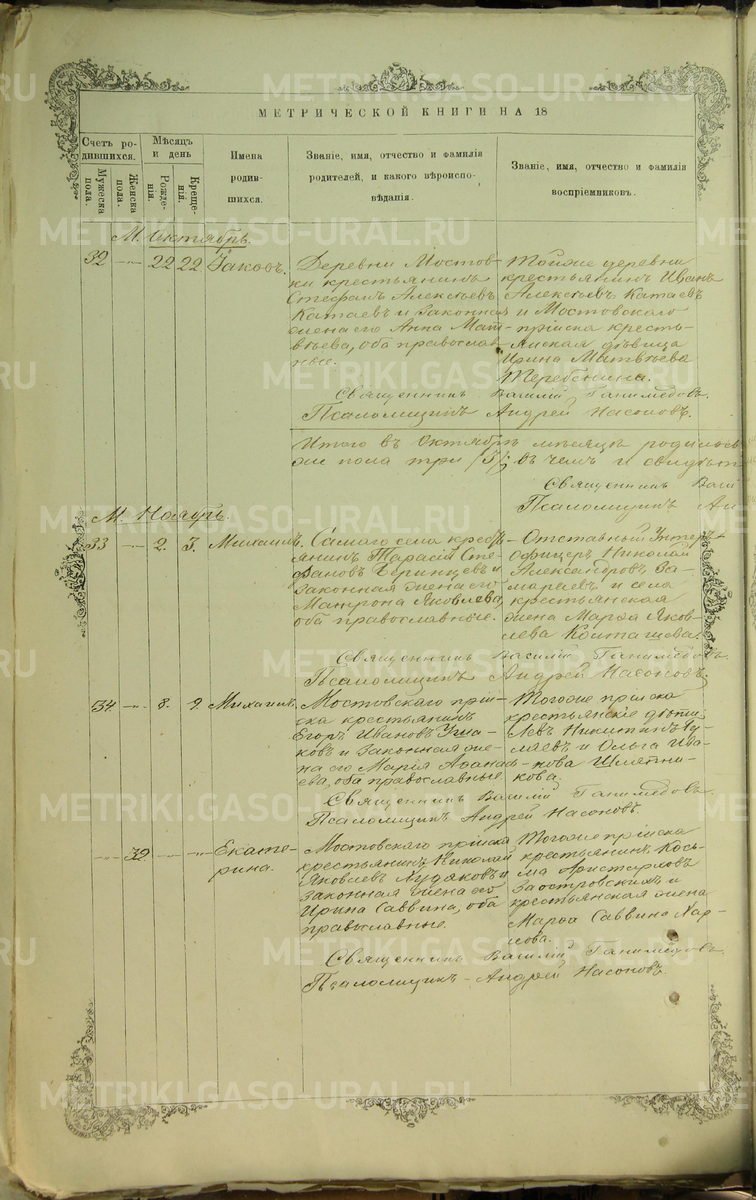 МЕТРИЧЕСКОЙ КНИГИ НА 18
Счетъ ро-
дившихся.
Мужеска
пола.
Женска
пола.
Мѣсяцъ
и день
Рожде-
нія.
Креще-
нія.
Имена
родив-
шихся.
Званіе, имя, отчество и фамилія
родителей, и какого вѣроиспо-
вѣданія.
Званіе, имя, отчество и фамилія
воспріемниковъ.
М. Октябрь.
32 — 22 22 Іаковъ.
Деревни Мостов-
ки крестьянинъ
Стефанъ Алексѣевъ
Катаевъ и законная
жена его Анна Мат-
вѣева, оба православ-
ные.
Тойже деревни
крестьянинъ Иванъ
Алексѣевъ Катаевъ
и Мостовскаго
пріиска кресть-
янская дѣвица
Ирина Матвѣева
Теребенина.
Священникъ Василій Ганимедовъ.
Псаломщикъ Андрей Насоновъ.
Итого въ Октябрѣ мѣсяцѣ родилось
пола три /3/; въ чемъ и свидѣт
Священникъ Васи
Псаломщикъ Ан
М. Ноябрь.
33 — 2. 3. Михаилъ.
Самаго села кресть-
янинъ Тарасій Сте-
фановъ и
законная жена его
Матрона Яковлева,
оба православные.
Отставный Унтеръ-
офицеръ Николай
Александровъ За-
мараевъ и села
крестьянская
жена Марѳа Яков-
лева
Священникъ Василій Ганимедовъ.
Псаломщикъ Андрей Насоновъ.
34. — 8. 9. Михаилъ.
Мостовскаго прі-
иска крестьянинъ
Егоръ Ивановъ Уша-
ковъ и законная же-
на его Марія Аѳанась-
ева, оба православные.
Тогоже пріиска
крестьянскіе дѣти:
Левъ Никитинъ
и Ольга Ива-
нова
Священникъ Василій Ганимедовъ.
Псаломщикъ Андрей Насоновъ.
— 32 — — Екате-
рина.
Мостовскаго пріиска
крестьянинъ Николай
Яковлевъ Худяковъ и
законная жена его
Ирина Саввина, оба
православные.
Тогоже пріиска
крестьянинъ Кось-
ма Аристарховъ
Заостровскихъ и
крестьянская жена
Марѳа Саввина
Священникъ Василій Ганимедовъ.
Псаломщикъ Андрей Насоновъ.
METRIKI.GASO-URAL.RU